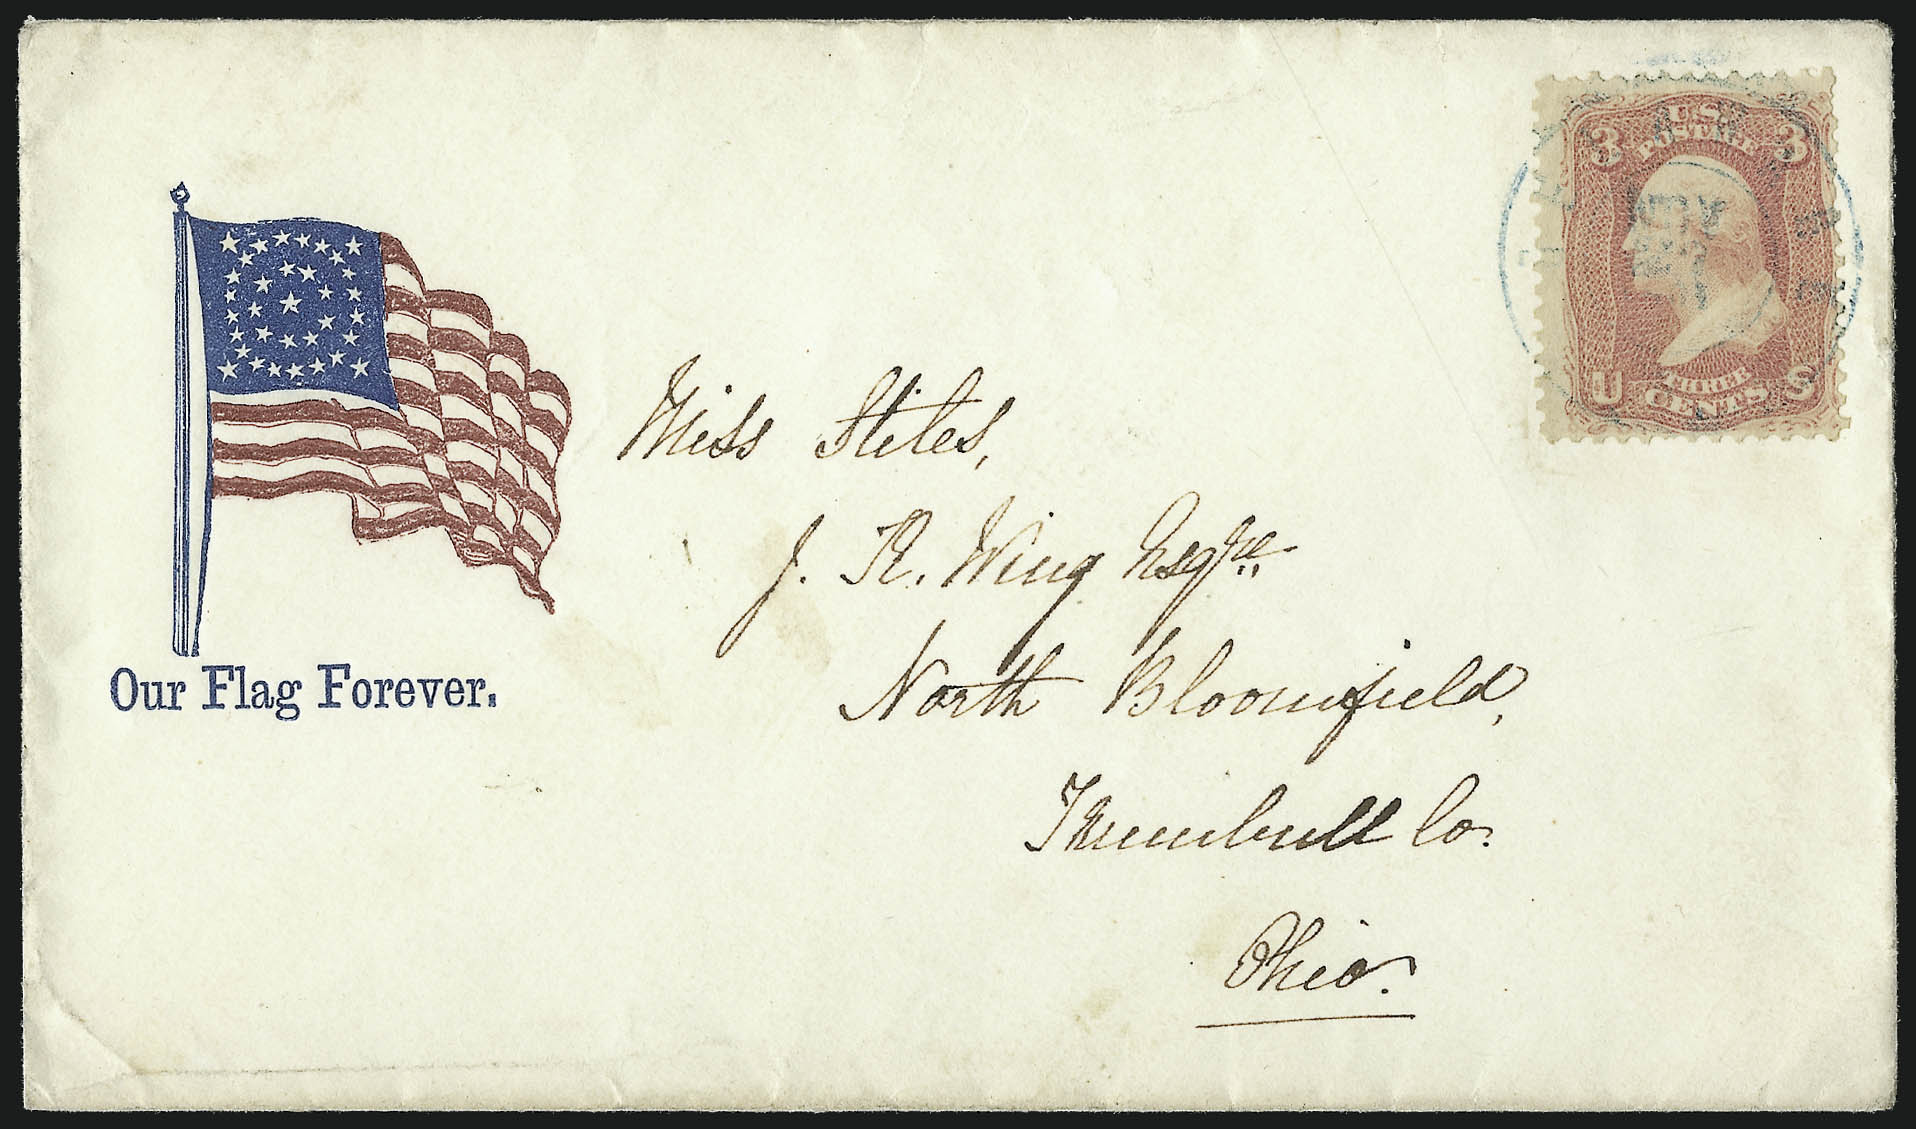 Our Flag Forever.
3 U.S. 3
POSTAGE
U THREE S
CENTS
Miss Stiles,
J. K. Wing Esqre
North Bloomfield,
Trumbull Co.
Ohio.